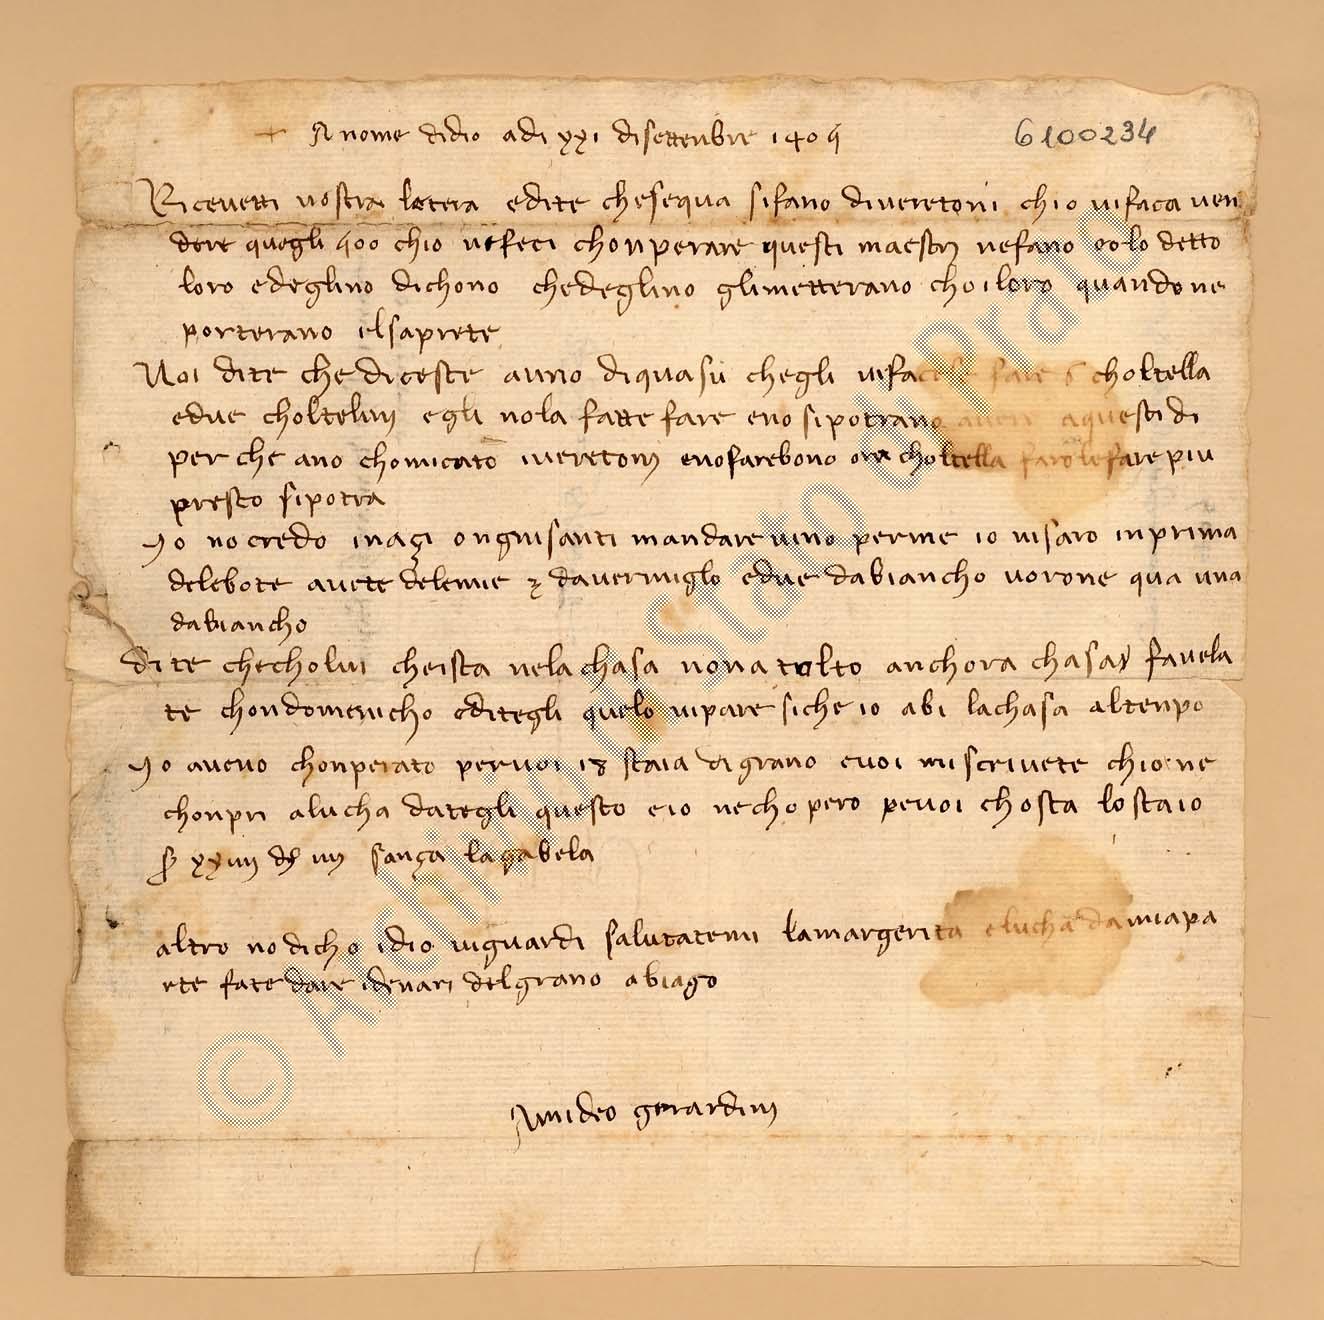 + A nome didio adi xxi disettenbre 1404
6100234
Ricevetti vostra letera edite chesequa sifano diveretoni chio vifaca ven
dere quegli 400 chio vefeci chonperare questi maestri nefano ovolo detto
loro edeglino dichono chedeglino glimetterano choiloro quandone
porterano elsaprete
Voi dite che diceste anno diquasu chegli vifacese fare 6 choltella
edue choltelini egli nola fatte fare eno sipotrano avere aquesti di
perche ano chomicato iveretoni enofarebono ora choltella farolefare piu
presto sipotra
Io no credo inazi ongnisanti mandare vino perme io visaro inprima
delebote avete delemie 2 davermiglo edue dabiancho vorone qua una
dabiancho
dite checholui cheista nela chasa nona tolto anchora chasa favela
te chondomenicho editegli quelo vipare siche io abi lachasa altenpo
Io avevo chonperato pervoi 18 staia digrano evoi mi scrivete chione
chonpri alucha dategli questo eio nechopero pevoi chosta lostaio
s xxiiii d iiii sanza lagabela
altro no dicho idio viguardi salutatemi lamargerita elucha damiapa
rte fate dare idenari delgrano abiago
Amideo gerardini
© Archivio di Stato di Prato